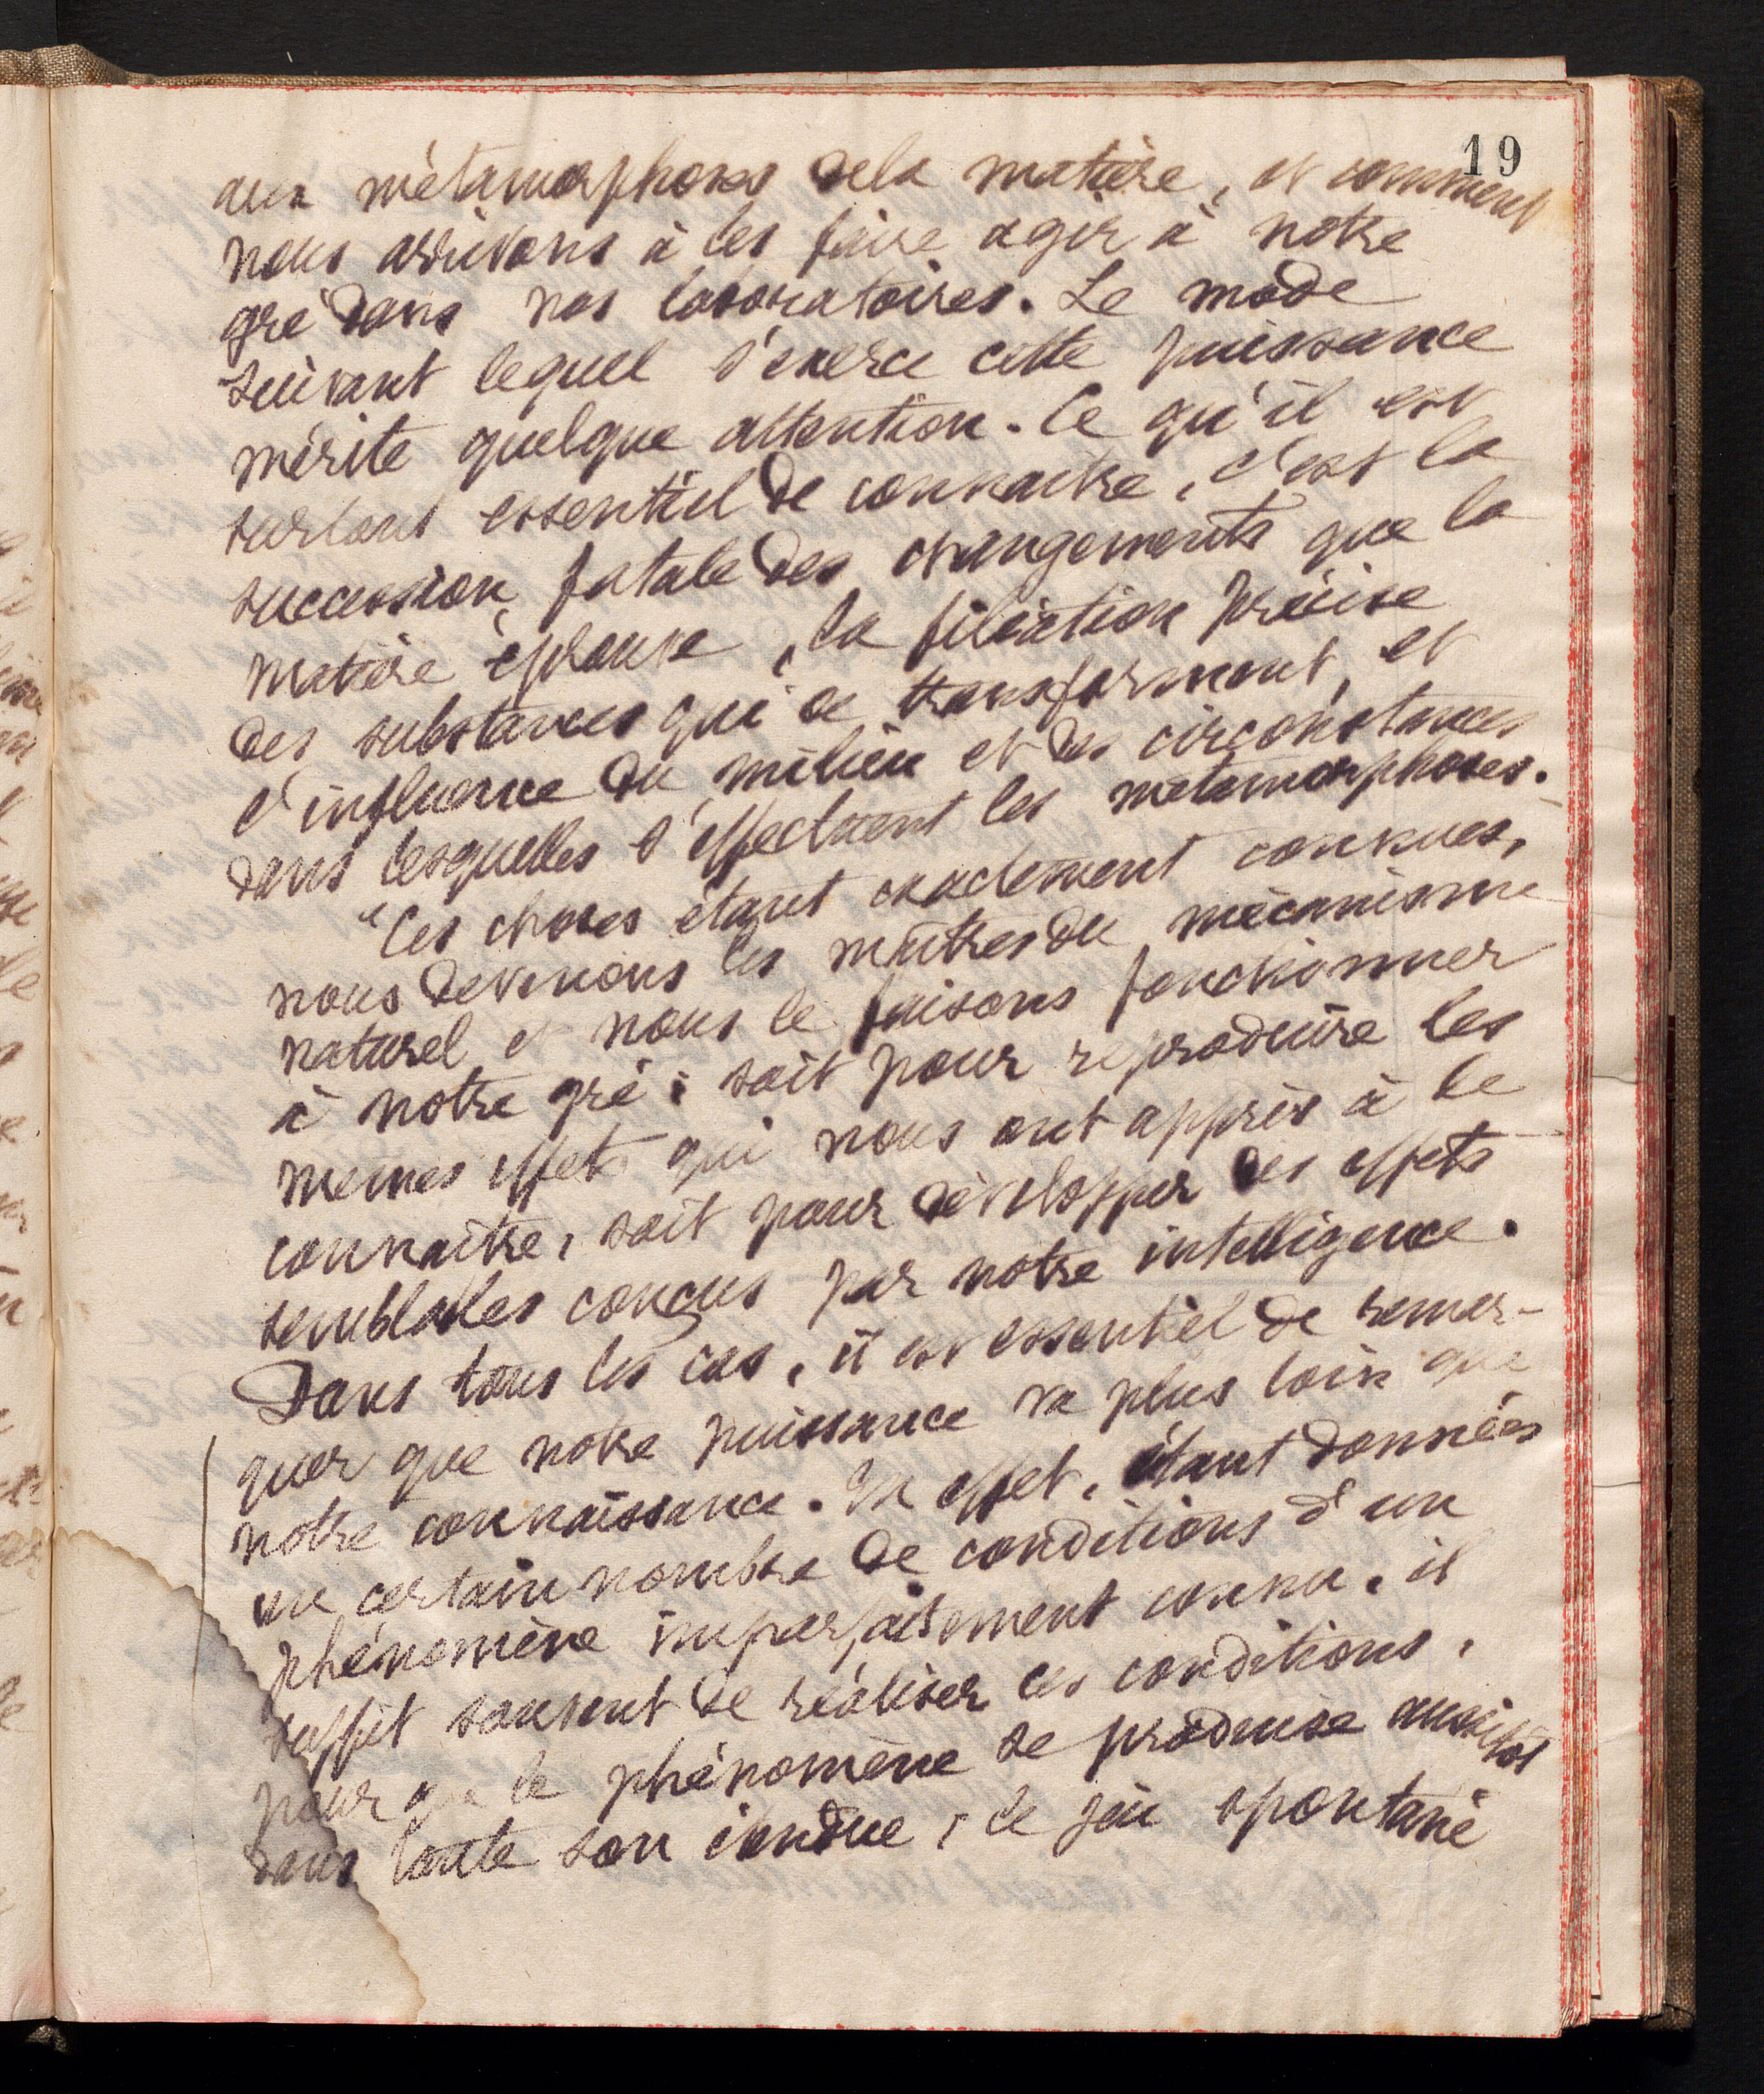 19
aux métamorphoses dela matière, et comment
nous arrivons à les faire agir à notre
gré dans nos laboratoires. Le mode
suivant lequel s'exerce cette puissance
mérite quelque attention. Ce qu'il est
surtout essentiel de connaitre, c'est la
succession fatale des changements que la
matière éprouve, la filiation précise
des substances qui se transforment, et
l'influence du milieu et des circonstances
dans lesquelles s'effectuent les métamorphoses.
"Ces choses étant exactement connues,
nous devenons les maîtres du mécanisme
naturel et nous le faisons fonctionner
à notre gré : soit pour reproduire les
memes effets qui nous ont appris à le
connaître, soit pour développer des effets
semblables conçus par notre intelligence.
Dans tous les cas, il est essentiel de remar-
quer que notre puissance va plus loin que
notre connaissance. En effet, étant données
un certain nombre de conditions d'un
phénomène imparfaitement connu, il
suffit souvent de réaliser ces conditions,
pour que le phénomène se produise aussitôt
dans toute son étendue ; le jeu spontané